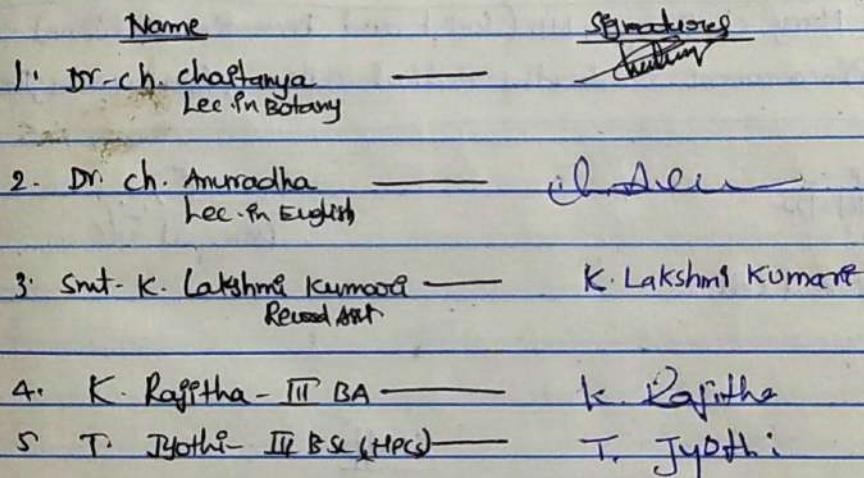 Name Signatures
1. Dr. ch. chaitanya ——
Lec in Botany
2. Dr. ch. Anuradha ——
Lec. in English
3. Smt. K. Lakshmi Kumari —— K. Lakshmi Kumari
Record Asst
4. K. Rajitha - III BA —— K. Rajitha
5 T. Jyothi - III BSc (HPCS) —— T. Jyothi